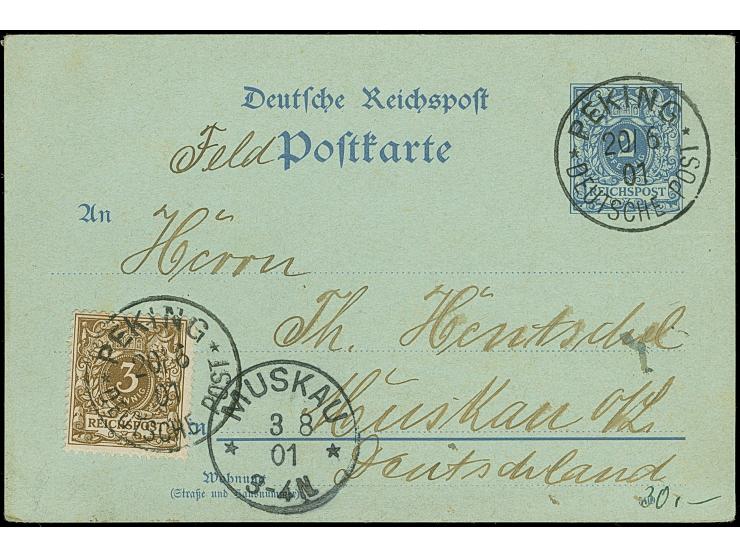 Deutsche Reichspost
Feld Postkarte
PEKING
20/6
01
* DEUTSCHE POST *
2
REICHSPOST
An
Herrn
Th. Hentschel
Muskau O/L.
Deutschland
PEKING
20/6
01
DEUTSCHE POST *
3
REICHSPOST
in
MUSKAU
* 3 8 *
01
3-4N
Wohnung
(Straße und Hausnummer)
30,—